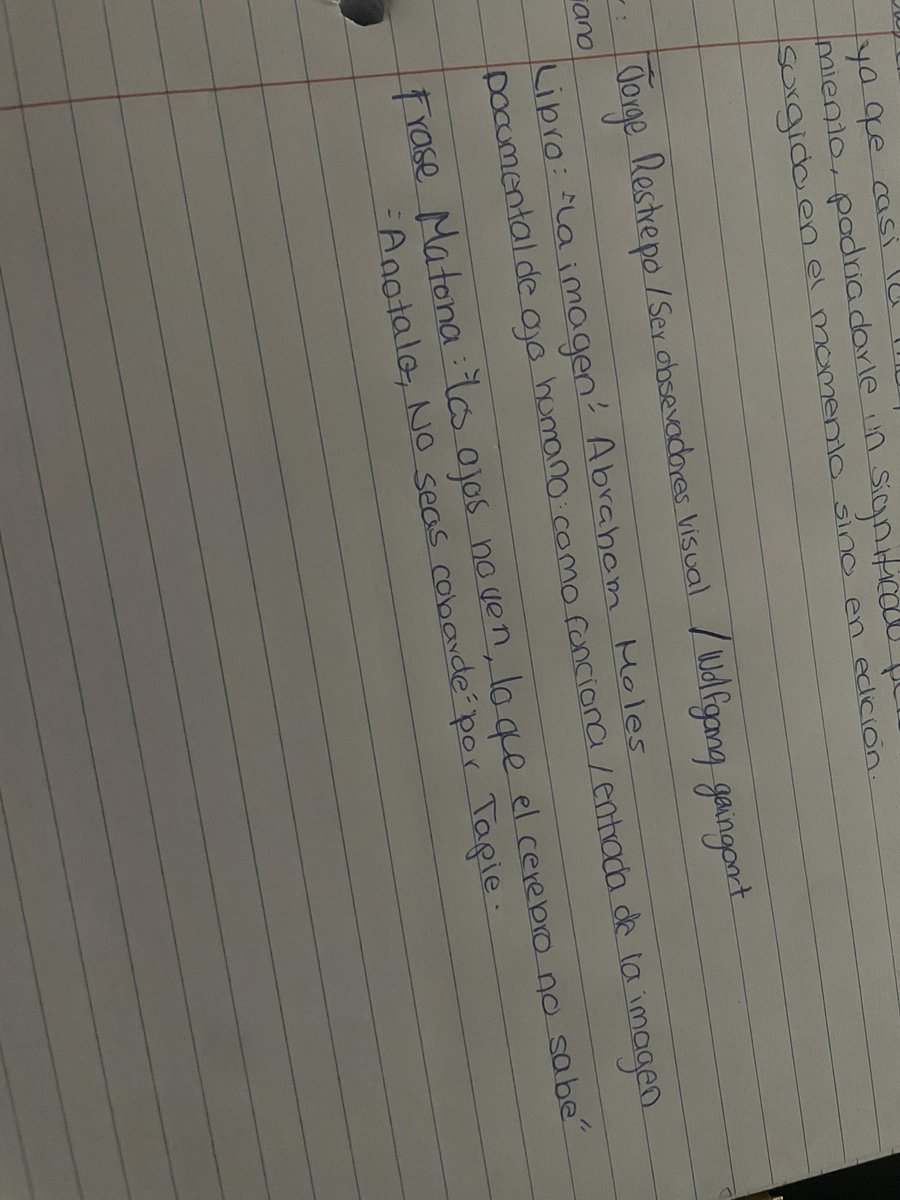 ya que casi la
miento, podria darle in significado
sorgido en el momento sino en edición.
Jorge Restrepo / Ser obsevadores visual / Wolfgang gaingart
Libro: "La imagen" Abraham Moles
Documental de ojo humano: como funciona / entrada de la imagen
Frase Matona: "los ojos no ven, lo que el cerebro no sabe"
"Anotalo, No seas cobarde" por Tapie.
iano